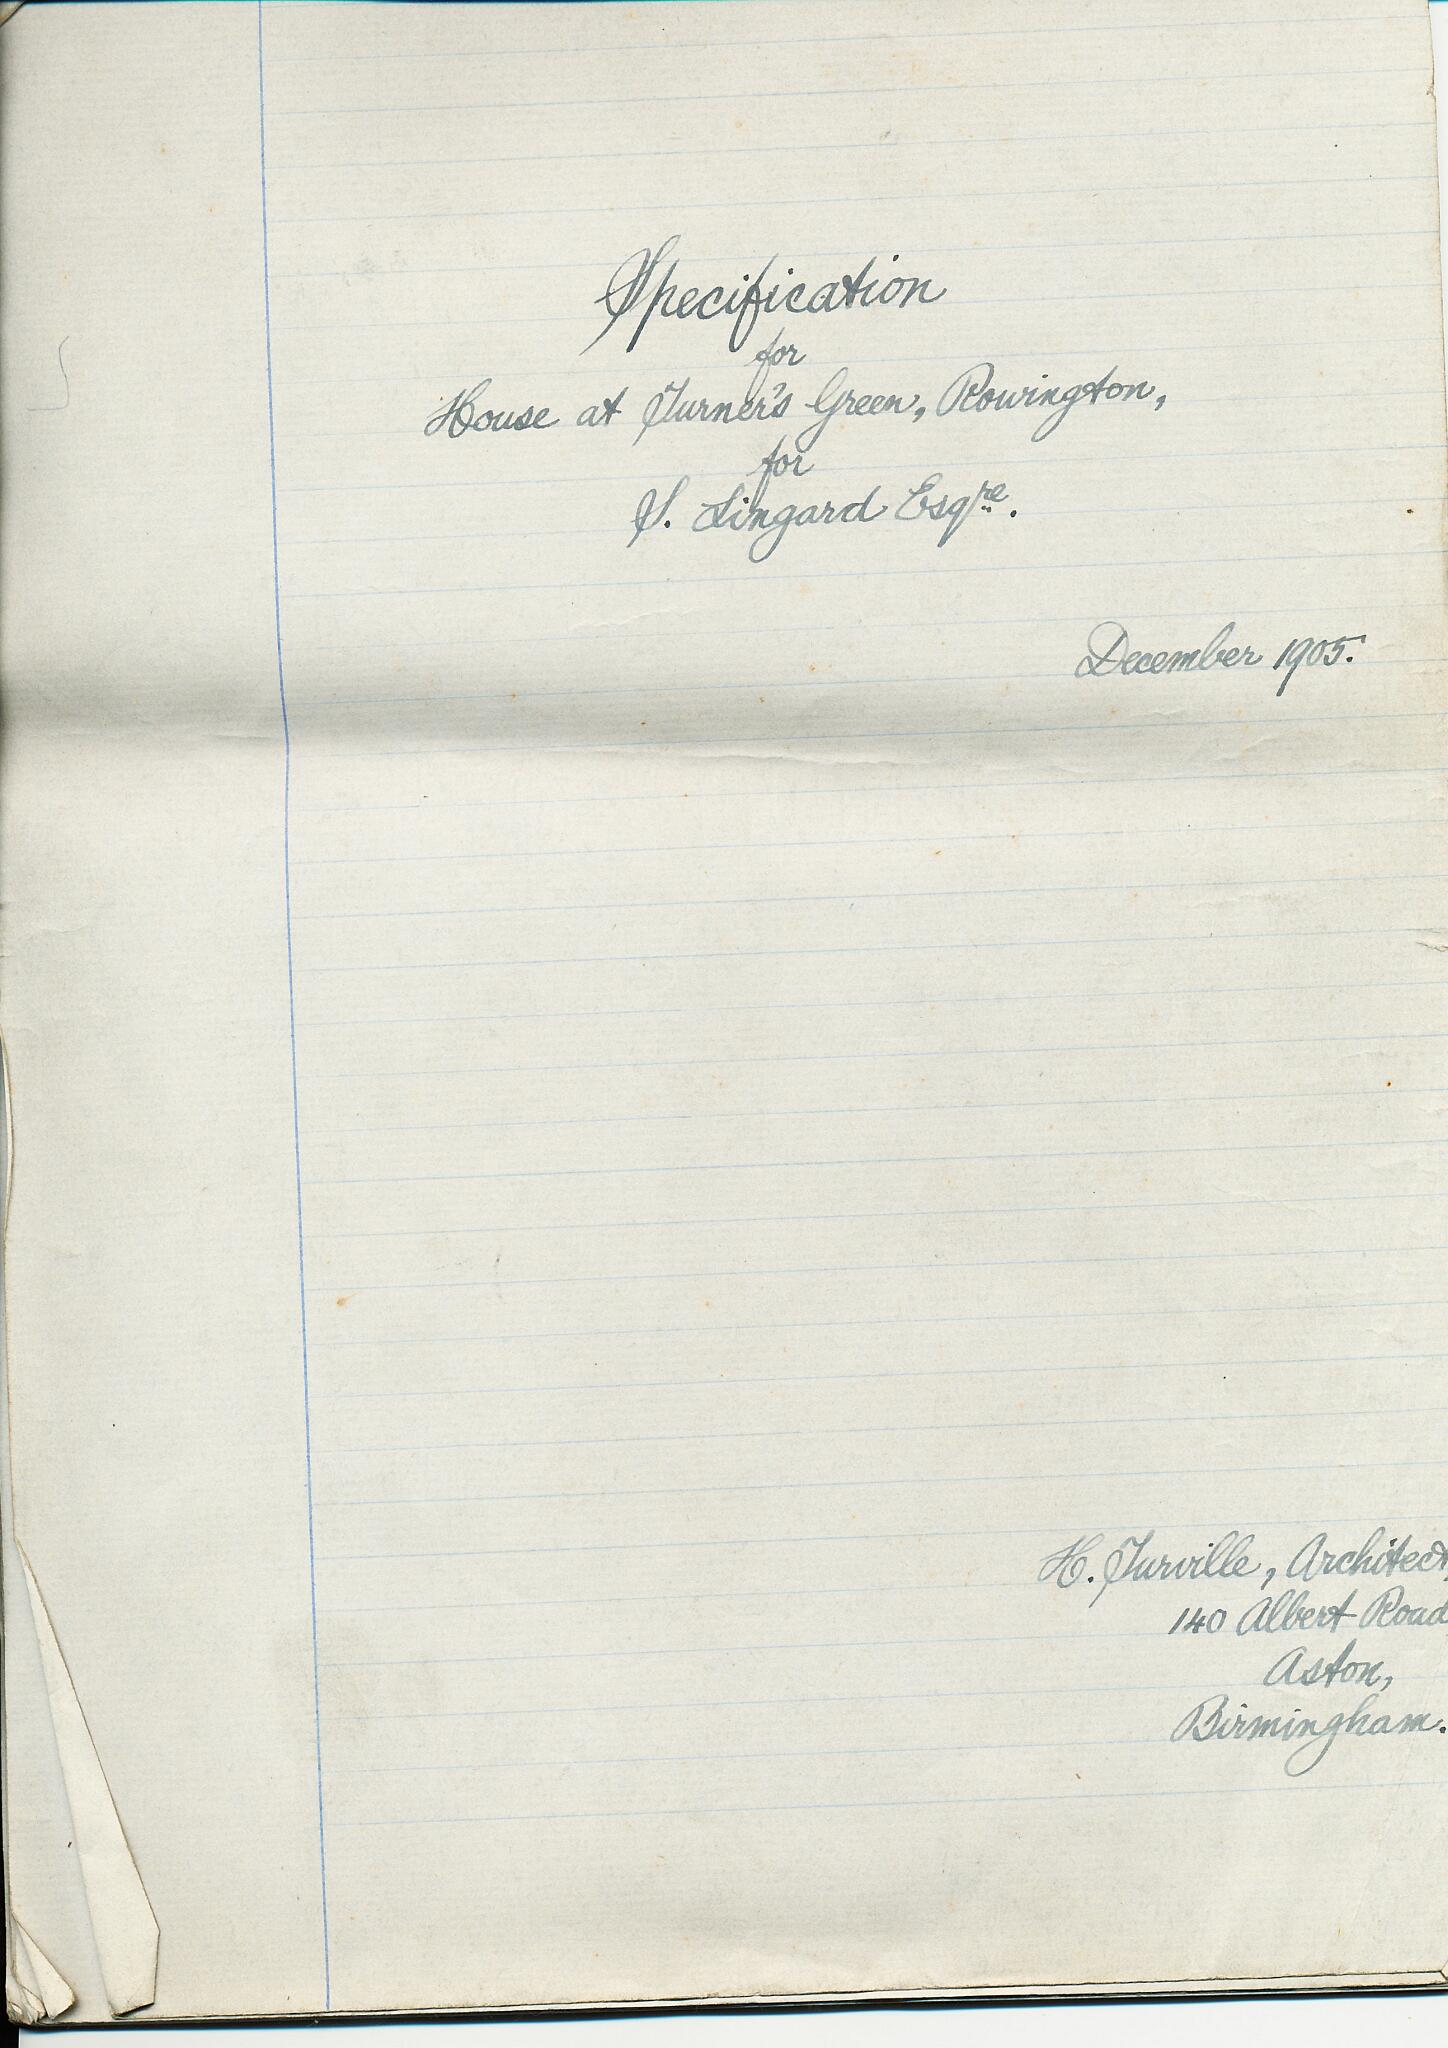 Specification
for
House at Turner's Green, Rowington,
for
S. Lingard Esqre.
December 1905.
H. Turville, Architect,
140 Albert Road
Aston,
Birmingham.